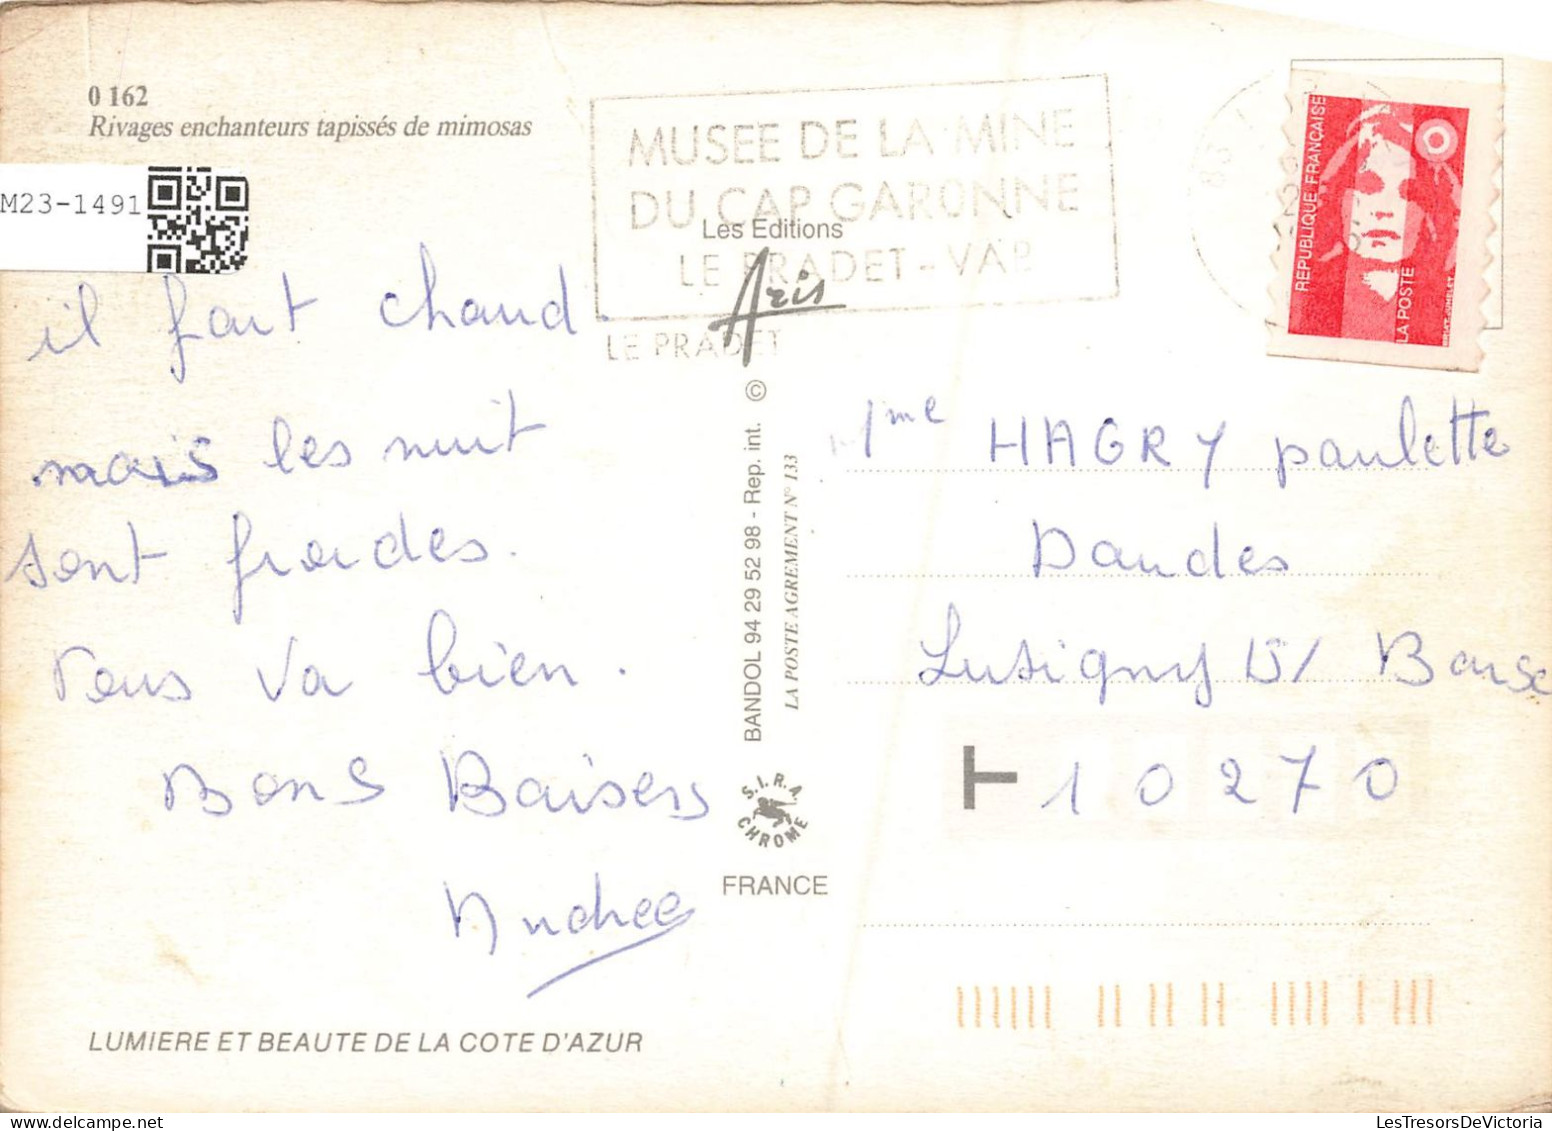 0 162
Rivages enchanteurs tapissés de mimosas
M23-1491
il fait chaud.
mais les nuit
sont froides.
Tous va bien.
Bons Baisers
Andree
LUMIERE ET BEAUTE DE LA COTE D'AZUR
MUSEE DE LA MINE
DU CAP GARONNE
LE PRADET - VAR
LE PRADET
Les Editions
Aris
BANDOL 94 29 52 98 - Rep. int. ©
LA POSTE AGREMENT N° 133
S.I.R.A.
CHROME
FRANCE
83
REPUBLIQUE FRANÇAISE
LA POSTE
Mme HAGRY paulette
Daudes
Lusigny S/ Barse
T 10270
LesTresorsDeVictoria.com